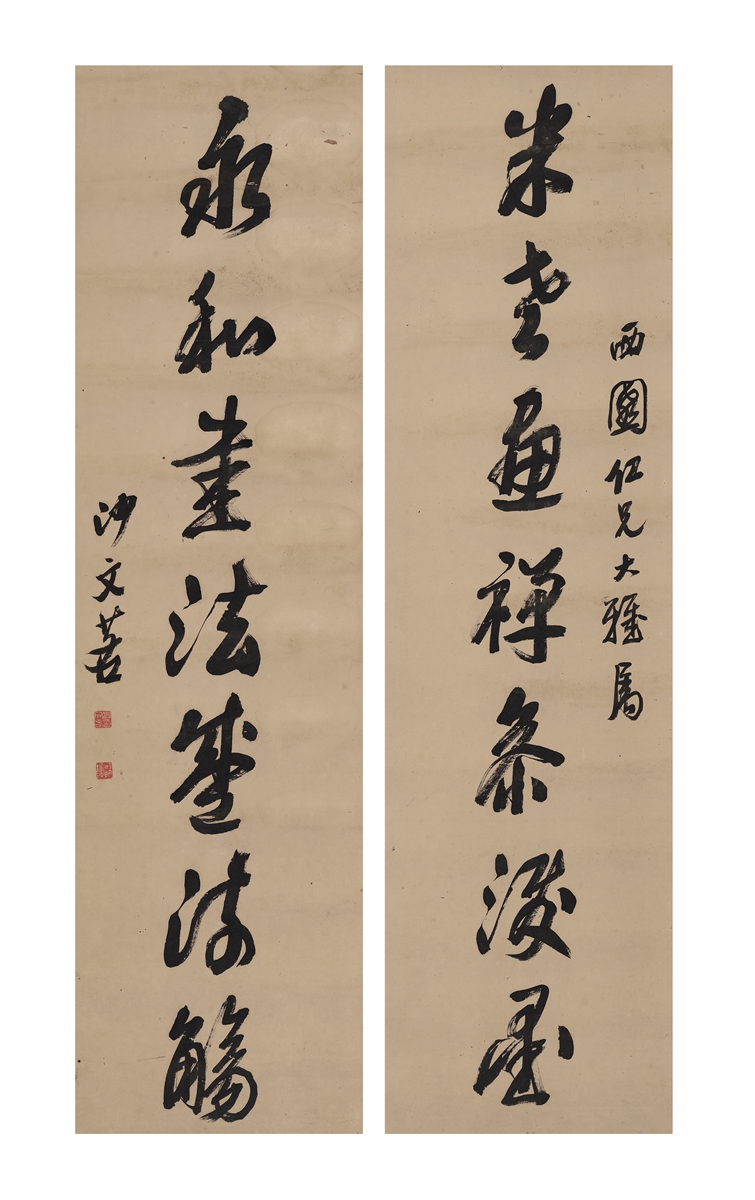 西園仁兄大雅屬
米老畫禪參潑墨
永和書法盛流觴
沙文若